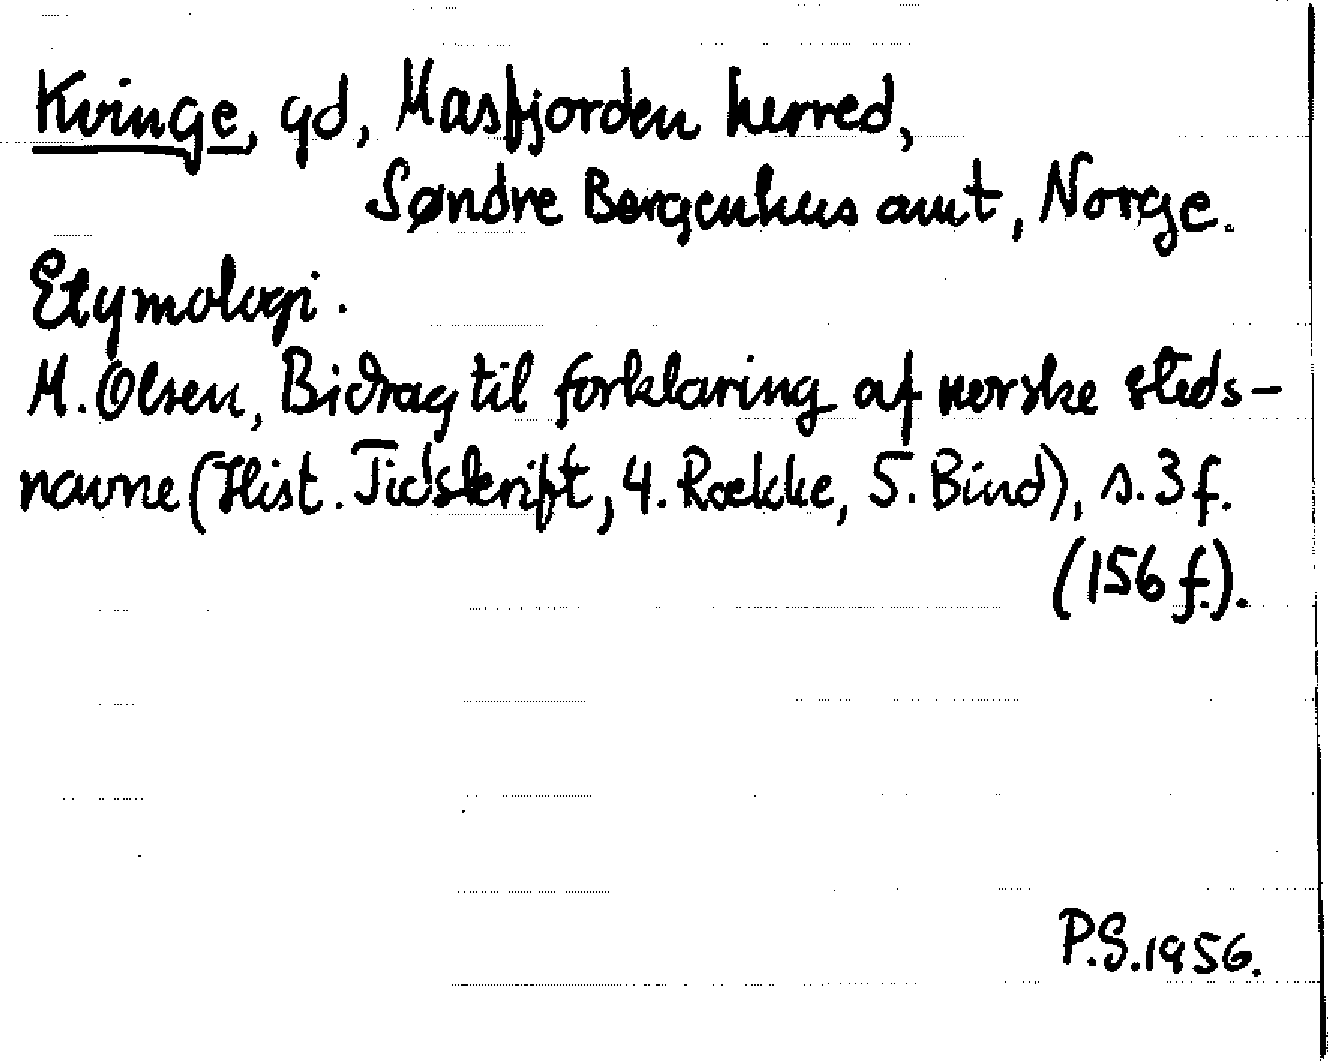 Kvinge, gd, Masfjorden herred,
Søndre Bergenhus amt, Norge.
Etymologi.
M. Olsen, Bidrag til forklaring af norske steds-
navne (Hist. Tidskrift, 4. Række, 5. Bind), s. 3 f.
(156 f.).
P.S. 1956.